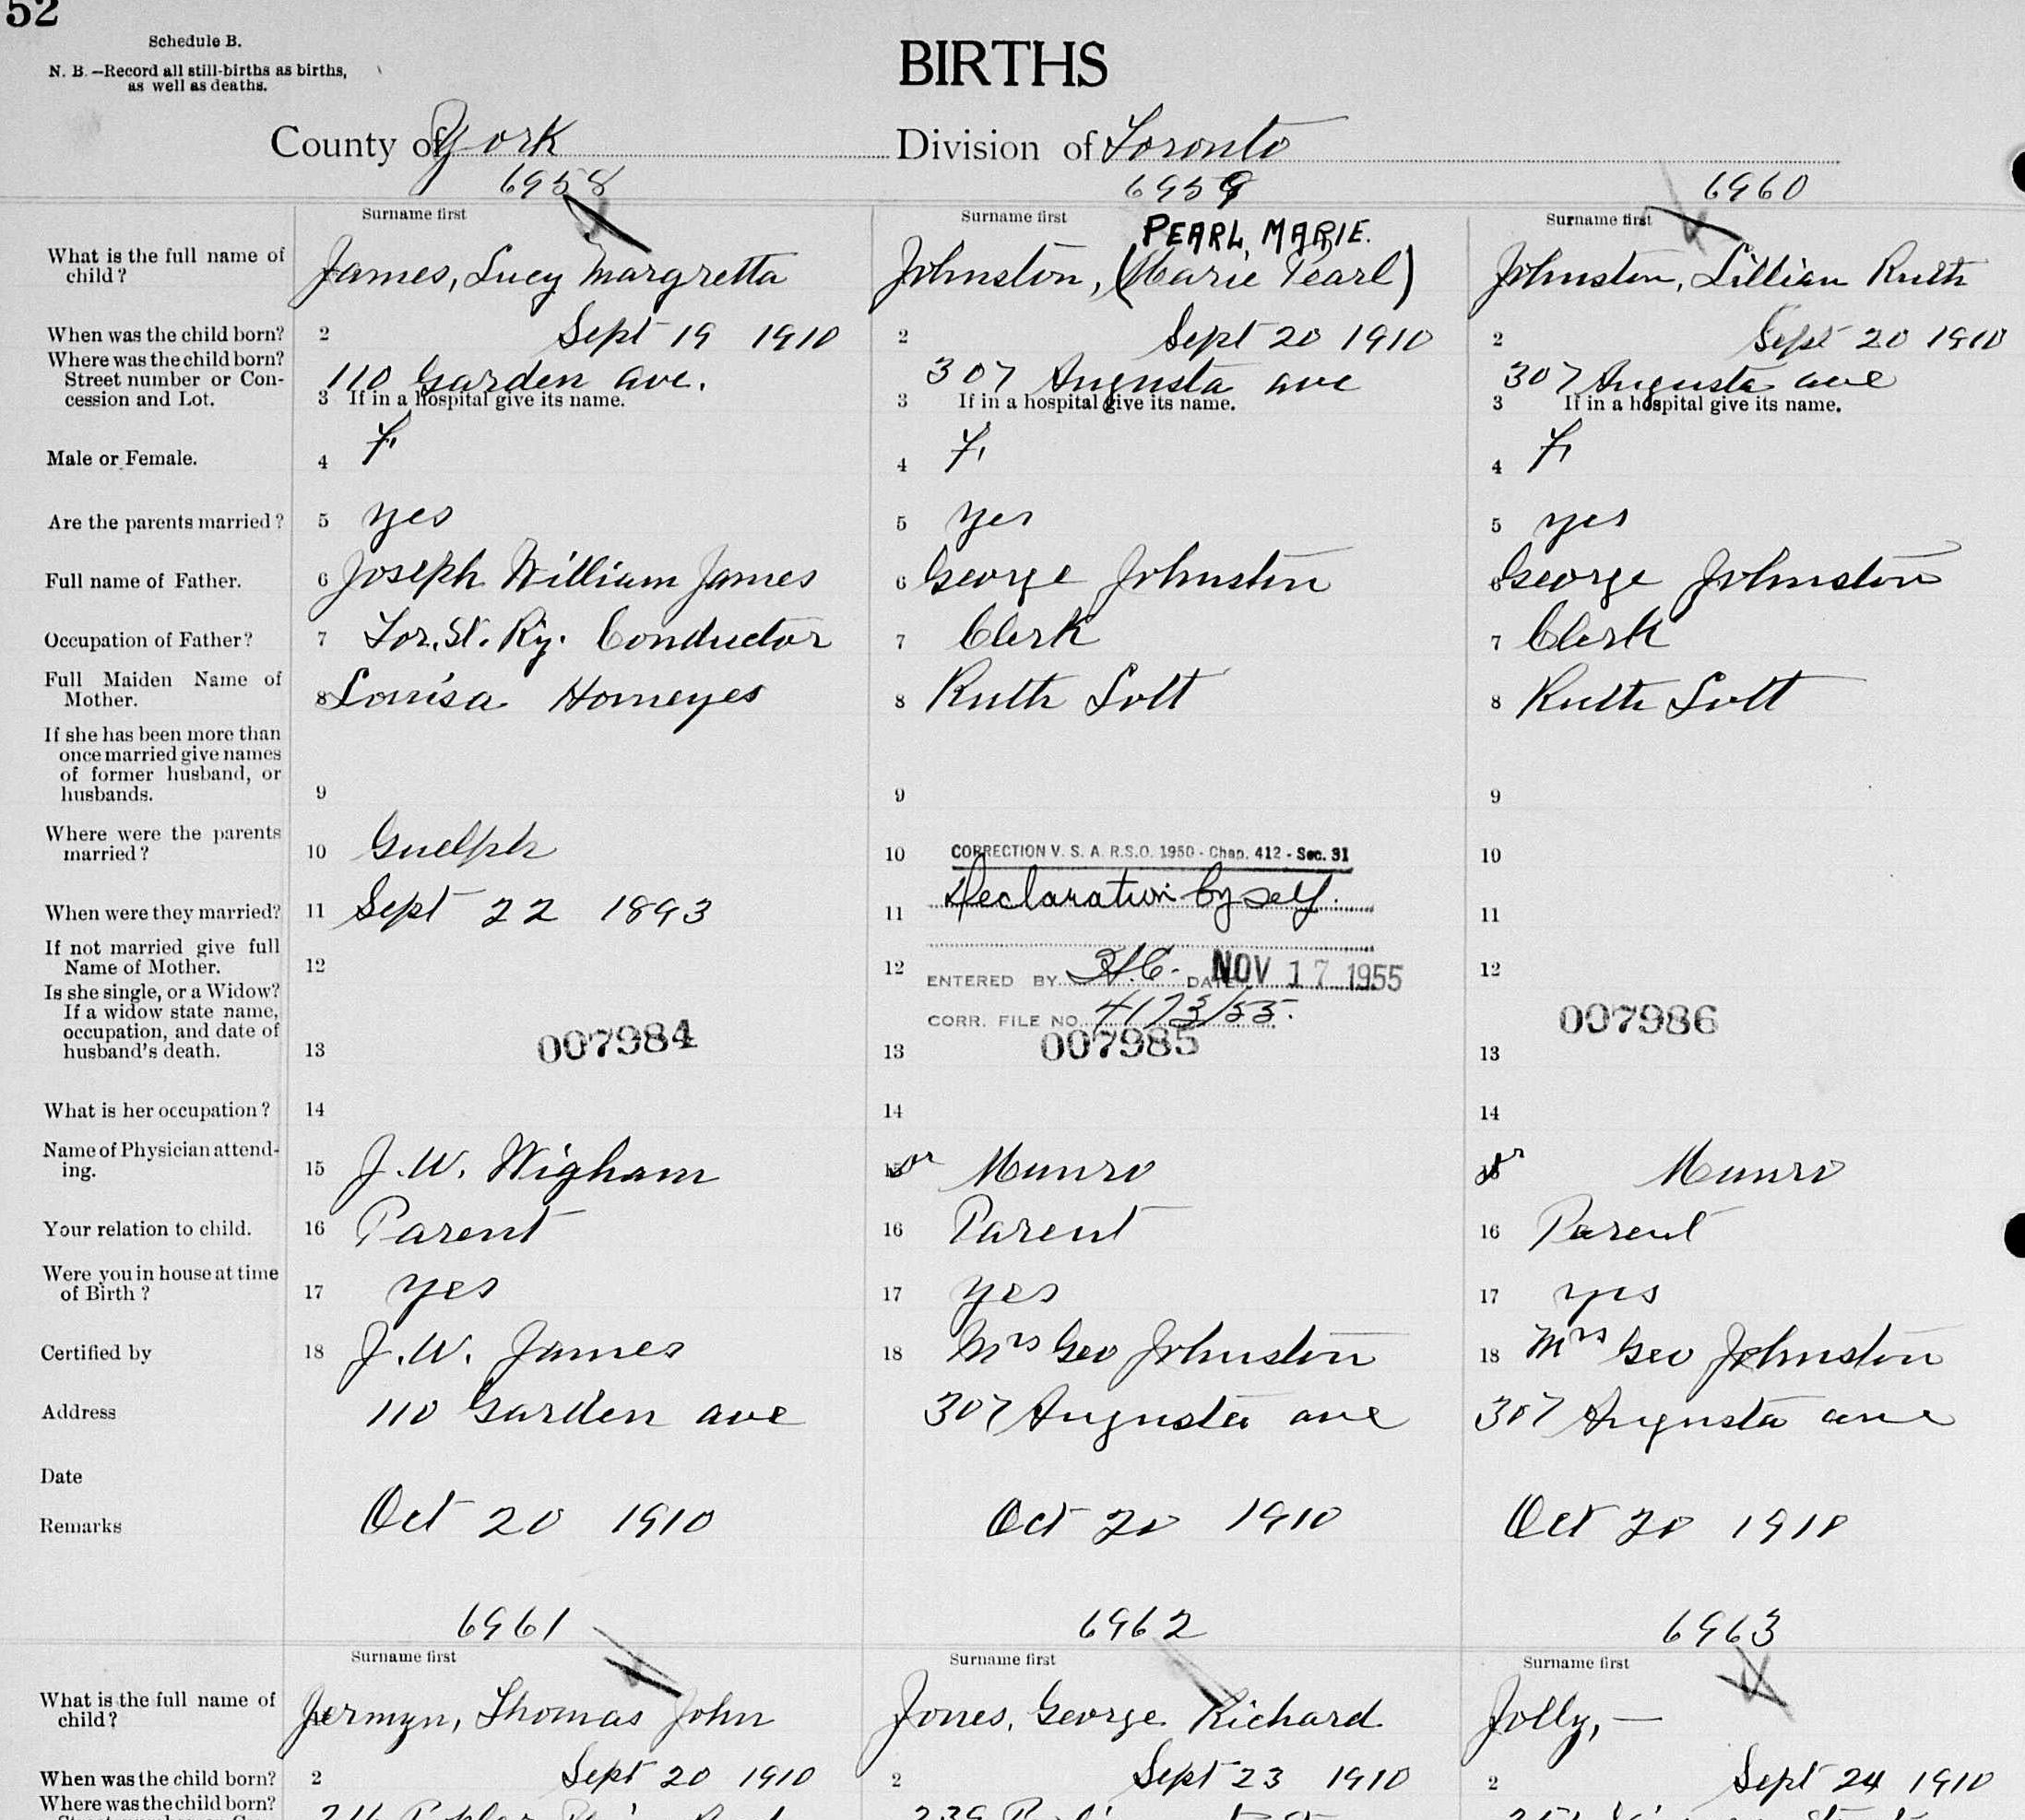 52
Schedule B.
N. B.—Record all still-births as births,
as well as deaths.
BIRTHS
County of York
Division of Toronto
6958 6959 6960
Surname first Surname first Surname first
PEARL MARIE.
What is the full name of
child?
James, Lucy Margretta
Johnston, (Marie Pearl)
Johnston, Lillian Ruth
When was the child born? 2 Sept 19 1910 2 Sept 20 1910 2 Sept 20 1910
Where was the child born?
Street number or Con-
cession and Lot.
110 Garden ave. 307 Augusta ave 307 Augusta ave
3 If in a hospital give its name. 3 If in a hospital give its name. 3 If in a hospital give its name.
Male or Female. 4 F. 4 F. 4 F.
Are the parents married? 5 yes 5 yes 5 yes
Full name of Father. 6 Joseph William James 6 George Johnston 6 George Johnston
Occupation of Father? 7 Tor. St. Ry. Conductor 7 Clerk 7 Clerk
Full Maiden Name of
Mother.
8 Louisa Homeyes 8 Ruth Lott 8 Ruth Lott
If she has been more than
once married give names
of former husband, or
husbands.
9 9 9
Where were the parents
married?
10 Guelph 10 CORRECTION V. S. A. R.S.O. 1950 - Chap. 412 - Sec. 31 10
When were they married? 11 Sept 22 1893 11 Declaration by self. 11
If not married give full
Name of Mother.
12 12 ENTERED BY H.C. DATE NOV 17 1955 12
Is she single, or a Widow?
If a widow state name,
occupation, and date of
husband's death.
CORR. FILE NO. 4173/55.
13 007984 13 007985 13 007986
What is her occupation? 14 14 14
Name of Physician attend-
ing.
15 J. W. Wigham 15 Dr Munro 15 Dr Munro
Your relation to child. 16 Parent 16 Parent 16 Parent
Were you in house at time
of Birth?
17 yes 17 yes 17 yes
Certified by 18 J. W. James 18 Mrs Geo Johnston 18 Mrs Geo Johnston
Address 110 Garden ave 307 Augusta ave 307 Augusta ave
Date
Remarks Oct 20 1910 Oct 20 1910 Oct 20 1910
6961 6962 6963
Surname first Surname first Surname first
What is the full name of
child?
Jermyn, Thomas John
Jones, George Richard
Jolly, —
When was the child born? 2 Sept 20 1910 2 Sept 23 1910 2 Sept 24 1910
Where was the child born?